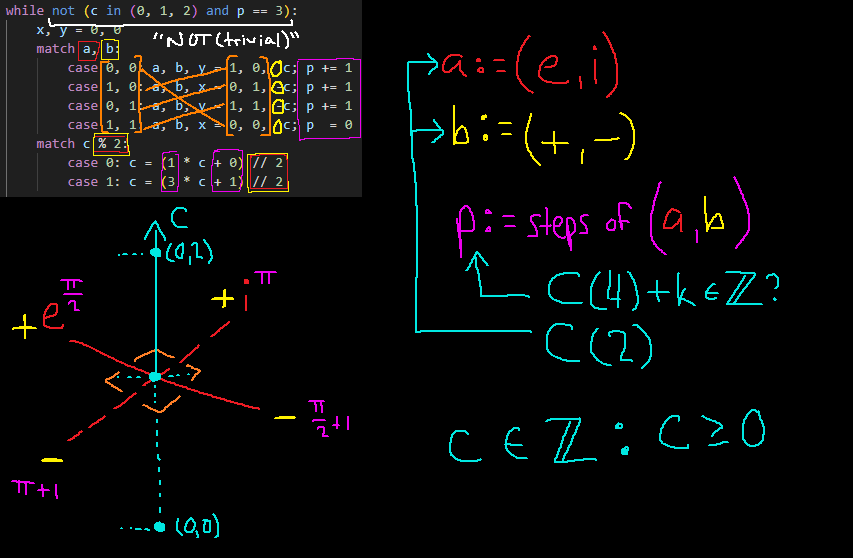 while not (c in (0, 1, 2) and p == 3):
x, y = 0, 0
"NOT(trivial)"
match a, b:
case 0, 0: a, b, y = 1, 0, c; p += 1
case 1, 0: a, b, x = 0, 1, -c; p += 1
case 0, 1: a, b, y = 1, 1, -c; p += 1
case 1, 1: a, b, x = 0, 0, c; p = 0
match c % 2:
case 0: c = (1 * c + 0) // 2
case 1: c = (3 * c + 1) // 2
a := (e, i)
b := (+, -)
p := steps of (a, b)
C(4)+k∈ℤ?
C(2)
c ∈ ℤ : c ≥ 0
C
(0,2)
+ e π/2
+ i π
- π/2+1
- π+1
(0,0)